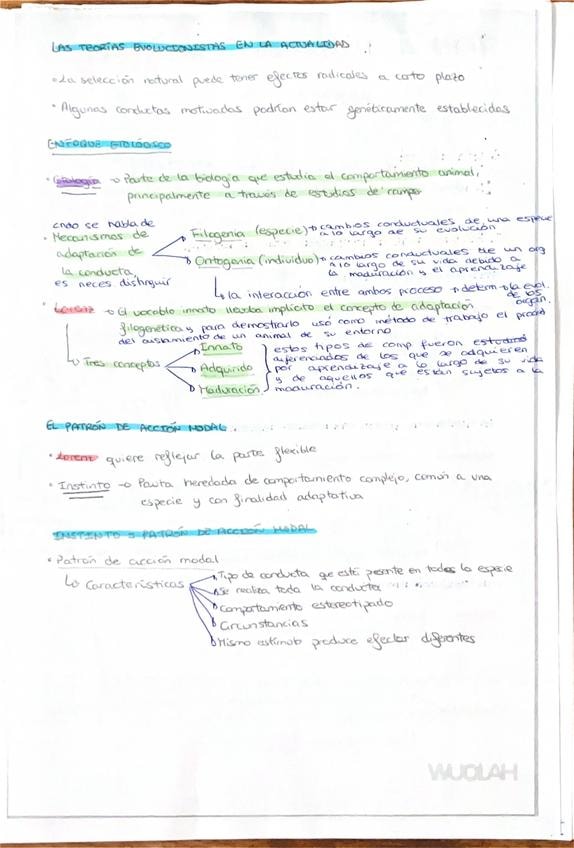 LAS TEORÍAS EVOLUCIONISTAS EN LA ACTUALIDAD.
• La selección natural puede tener efectos radicales a corto plazo
• Algunas conductas motivadas podrían estar genéticamente establecidas
ENFOQUE ETOLÓGICO
• Etología → Parte de la biología que estudia el comportamiento animal,
principalmente a través de estudios de campo
cndo se habla de
• Mecanismos de
adaptación de
la conducta,
es neces distinguir
Filogenia (especie) → cambios conductuales de una especie
a lo largo de su evolución
Ontogenia (individuo) → cambios conductuales de un org
a lo largo de su vida debido a
la maduración y el aprendizaje
↳ la interacción entre ambos proceso → determ → la evol.
de los
organ.
• Lorenz → El vocablo innato llevaba implícito el concepto de adaptación
filogenética y para demostrarlo usó como método de trabajo el proced
del aislamiento de un animal de su entorno
↳ Tres conceptos
Innato
Adquirido
Maduración
estos tipos de comp fueron estudiados
diferenciados de los que se adquieren
por aprendizaje a lo largo de su vida
y de aquellos que están sujetos a la
maduración.
EL PATRÓN DE ACCIÓN MODAL.
• Lorenz quiere reflejar la parte flexible
• Instinto → Pauta heredada de comportamiento complejo, común a una
especie y con finalidad adaptativa
INSTINTO Y PATRÓN DE ACCIÓN MODAL
• Patrón de acción modal
↳ Características
Tipo de conducta que está presente en toda la especie
Se realiza toda la conducta
Comportamiento estereotipado
Circunstancias
Mismo estímulo produce efectos diferentes
WUOLAH